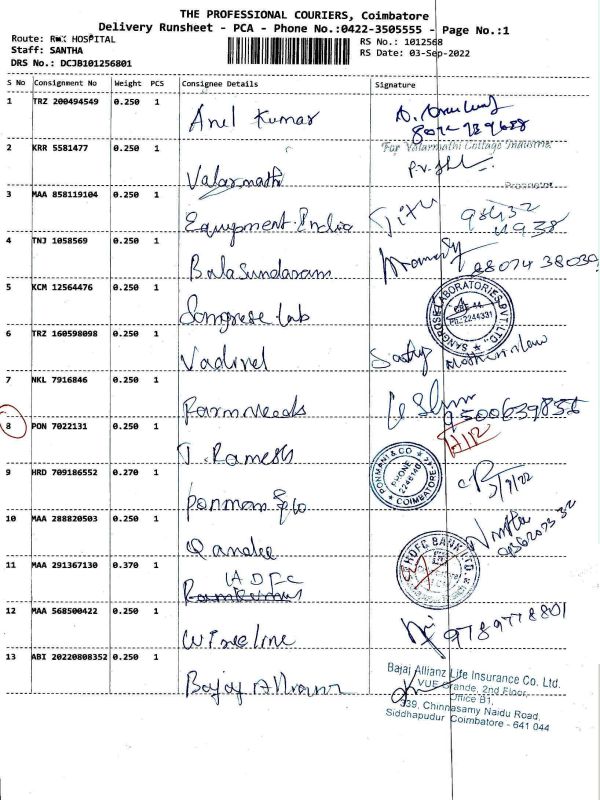 THE PROFESSIONAL COURIERS, Coimbatore
Delivery Runsheet - PCA - Phone No.:0422-3505555 - Page No.:1
Route: HOSPITAL
Staff: SANTHA
DRS No.: DCJB101256801
RS No.: 1012568
RS Date: 03-Sep-2022
S No Consignment No Weight PCS Consignee Details Signature
1 TRZ 200494549 0.250 1 Anil Kumar
2 KRR 5581477 0.250 1 Valarmathi
For Valarmathi Cottage Industrie
Proprietor
3 MAA 858119104 0.250 1 Equipment India Jitu 98432
4 TNJ 1058569 0.250 1 Balasundaram 8807438039
5 KCM 12564476 0.250 1 Sangrose Lab
SANGROSE LABORATORIES PVT LTD.
PH:2244331
6 TRZ 160598098 0.250 1 Vadivel
7 NKL 7916846 0.250 1 Farm Needs
8 PON 7022131 0.250 1 T. Ramesh
PONMANI & CO
PHONE
2246140
COIMBATORE
9 HRD 709186552 0.270 1 Ponmani & Co 3/9/22
10 MAA 288820503 0.250 1
11 MAA 291367130 0.370 1 HDFC
Ramkumar
HDFC BANK LTD.
12 MAA 568500422 0.250 1 Wireline 9789778801
13 ABI 20220808352 0.250 1 Bajaj Allianz
Bajaj Allianz Life Insurance Co. Ltd.
VUE Grande, 2nd Floor,
Office B1,
339, Chinnasamy Naidu Road,
Siddhapudur Coimbatore - 641 044